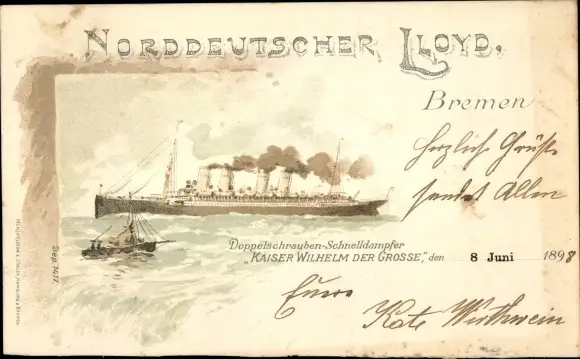 NORDDEUTSCHER LLOYD,
Bremen
Herzliche Grüße
sendet Allen
Doppelschrauben-Schnelldampfer
„KAISER WILHELM DER GROSSE,“ den 8 Juni 1898
Eure
Kate Wirthwein
Dep. 1417.